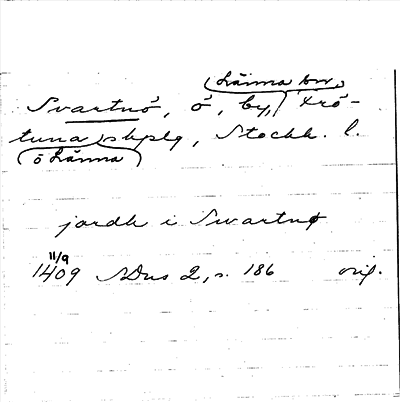 Länna sn,
Svartnö, ö, by, Frö-
tuna skplg, Stockh. l.
ö Länna
jordh i Swartnø
11/9
1409 SDns 2, s. 186 orig.